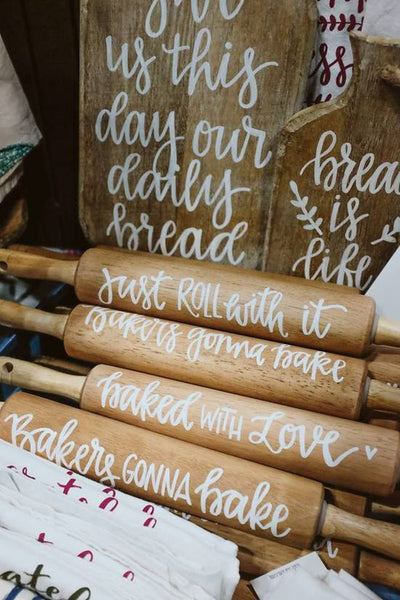 Give
us this
day our
daily
bread
bread
is
life
Just ROLL with it
Bakers gonna bake
baked WITH Love
Bakers GONNA bake